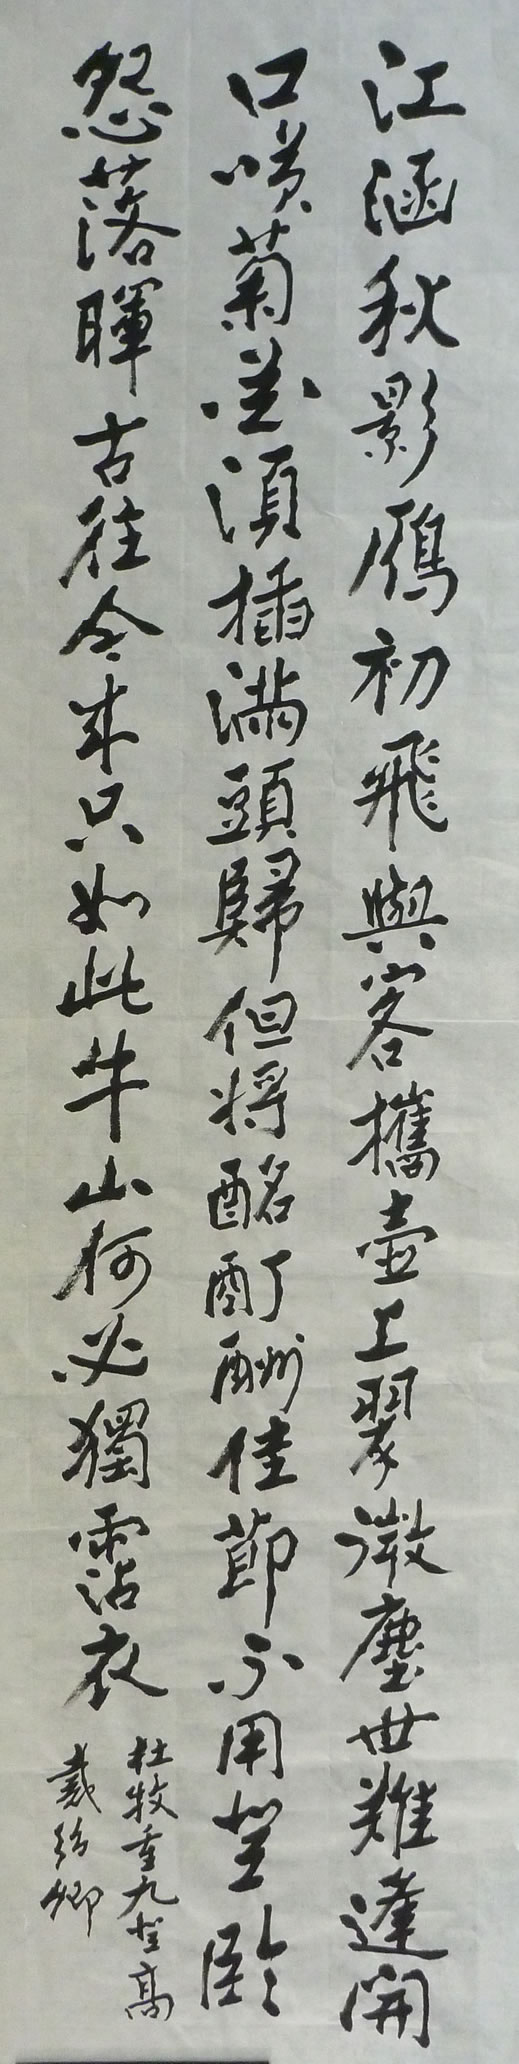 江涵秋影鴈初飛與客攜壺上翠微塵世難逢開
口嘆菊花須插滿頭歸但將酩酊酬佳節不用登臨
怨落暉古往今來只如此牛山何必獨霑衣
杜牧重九登高
戴 卿